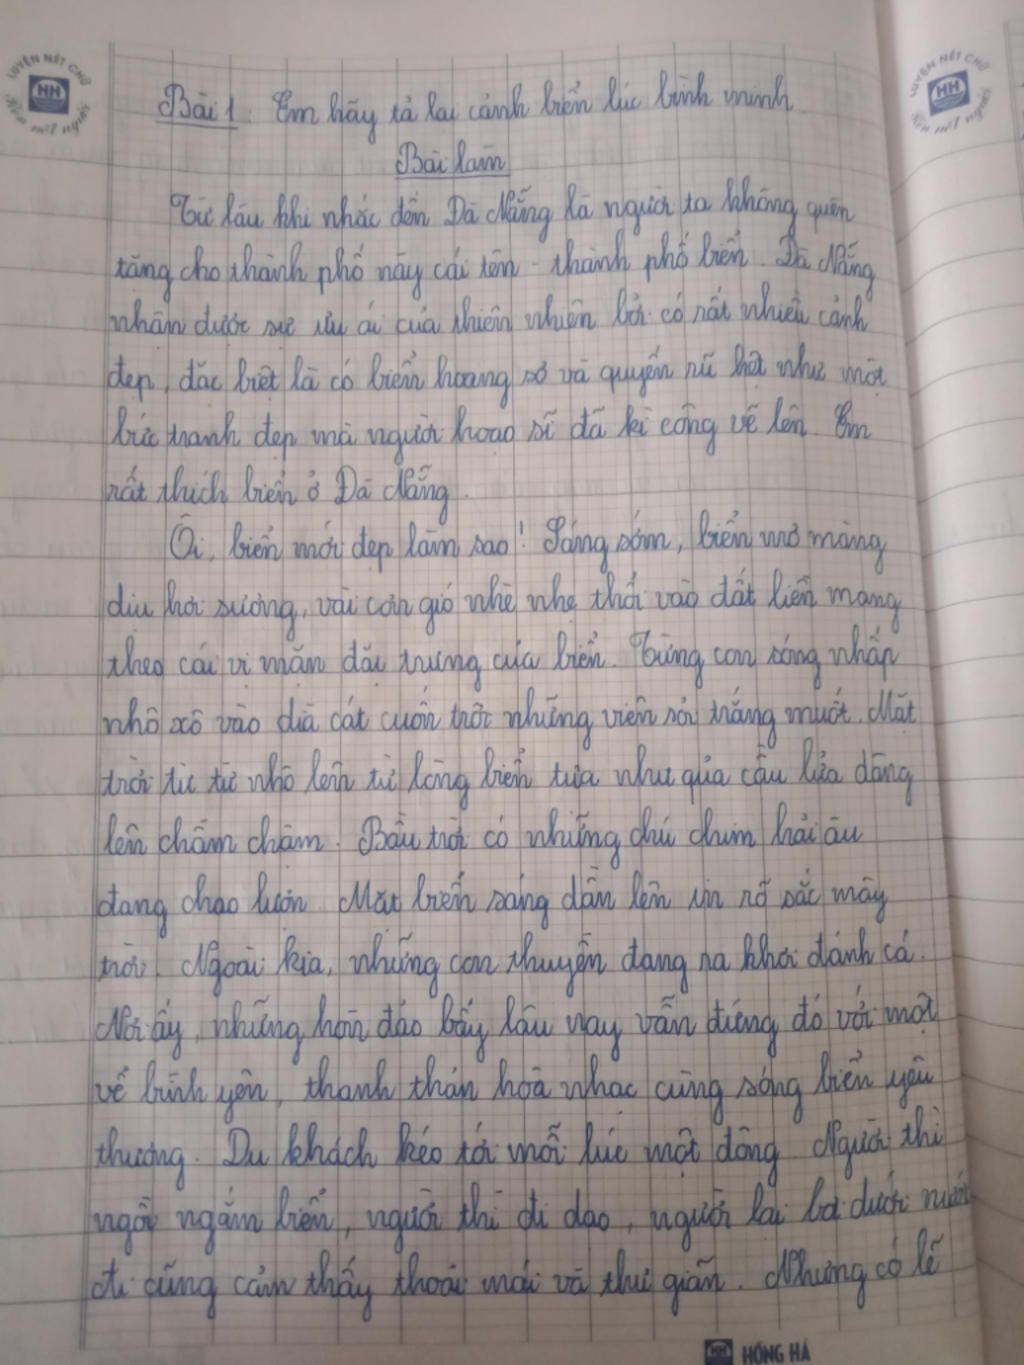 LUYỆN NÉT CHỮ
HH
Rèn nết người
LUYỆN NÉT CHỮ
HH
Rèn nết người
Bài 1: Em hãy tả lại cảnh biển lúc bình minh.
Bài làm
Từ lâu khi nhắc đến Đà Nẵng là người ta không quên
tặng cho thành phố này cái tên - thành phố biển. Đà Nẵng
nhận được sự ưu ái của thiên nhiên bởi có rất nhiều cảnh
đẹp, đặc biệt là có biển hoang sơ và quyến rũ hệt như một
bức tranh đẹp mà người hoạ sĩ đã kì công vẽ lên. Em
rất thích biển ở Đà Nẵng.
Ôi, biển mới đẹp làm sao! Sáng sớm, biển mơ màng
dịu hơi sương, vài cơn gió nhè nhẹ thổi vào đất liền mang
theo cái vị mặn đặc trưng của biển. Từng con sóng nhấp
nhô xô vào dìa cát cuốn trôi những viên sỏi trắng muốt. Mặt
trời từ từ nhô lên từ lòng biển tựa như qủa cầu lửa dâng
lên chầm chậm. Bầu trời có những chú chim hải âu
đang chao lượn. Mặt biển sáng dần lên in rõ sắc mây
trời. Ngoài kia, những con thuyền đang ra khơi đánh cá.
Nơi ấy, những hòn đảo bấy lâu nay vẫn đứng đó với một
vẻ bình yên, thanh thản hoà nhạc cùng sóng biển yêu
thương. Du khách kéo tới mỗi lúc một đông. Người thì
ngồi ngắm biển, người thì đi dạo, người lại bơi dưới nước
đi cũng cảm thấy thoải mái và thư giãn. Nhưng có lẽ
HH HỒNG HÀ